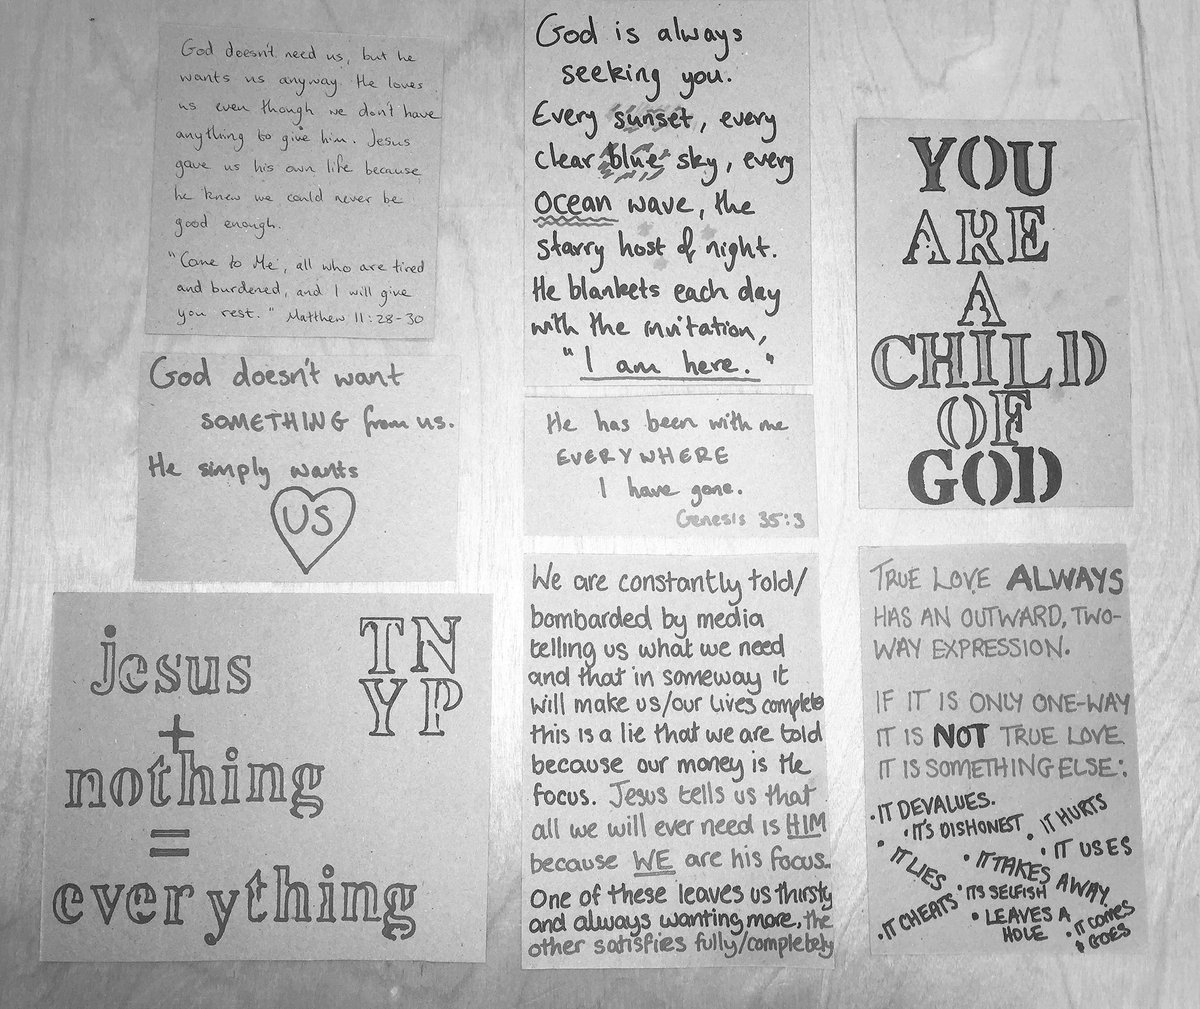 God doesn't need us, but he
wants us anyway. He loves
us even though we don't have
anything to give him. Jesus
gave us his own life because
he knew we could never be
good enough.
"Come to Me, all who are tired
and burdened, and I will give
you rest." Matthew 11:28-30
God doesn't want
SOMETHING from us.
He simply wants
US
jesus
+
nothing
=
everything
TN
YP
God is always
seeking you.
Every sunset, every
clear blue sky, every
ocean wave, the
starry host of night.
He blankets each day
with the invitation,
"I am here."
He has been with me
EVERYWHERE
I have gone.
Genesis 35:3
We are constantly told/
bombarded by media
telling us what we need
and that in someway it
will make us/our lives complete
this is a lie that we are told
because our money is the
focus. Jesus tells us that
all we will ever need is HIM
because WE are his focus.
One of these leaves us thirsty
and always wanting more, the
other satisfies fully/completely
YOU
ARE
A
CHILD
OF
GOD
TRUE LOVE ALWAYS
HAS AN OUTWARD, TWO-
WAY EXPRESSION.
IF IT IS ONLY ONE-WAY
IT IS NOT TRUE LOVE
IT IS SOMETHING ELSE:
• IT DEVALUES.
• IT'S DISHONEST
• IT HURTS
• IT LIES
• IT TAKES AWAY
• IT USES
• IT CHEATS
• ITS SELFISH
• LEAVES A
HOLE
• IT COMES
& GOES